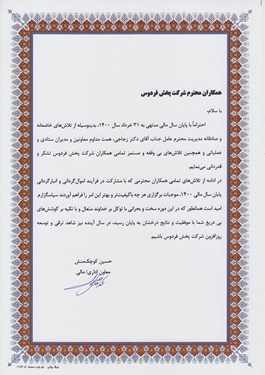 همکاران محترم شرکت پخش فردوس
با سلام،
احتراماً با پایان سال مالی منتهی به ۳۱ خرداد سال ۱۴۰۰، بدینوسیله از تلاش‌های خالصانه
و صادقانه مدیریت محترم عامل جناب آقای دکتر زجاجی، همت مداوم معاونین و مدیران ستادی و
عملیاتی و همچنین تلاش‌های بی وقفه و مستمر تمامی همکاران شرکت پخش فردوس تشکر و
قدردانی می‌نمایم.
در ادامه از تلاش‌های تمامی همکاران محترمی که با مشارکت در فرآیند اموال‌گردانی و انبارگردانی
پایان سال مالی ۱۴۰۰، موجبات برگزاری هر چه باکیفیت‌تر و بهتر این امر را فراهم آوردند سپاسگزارم.
امید است همانطور که در این دوره سخت و بحرانی با توکل بر خداوند متعال و با تکیه بر کوشش‌های
بی دریغ شما با موفقیت و نتایج درخشان به پایان رسید، در سال آینده نیز شاهد ترقی و توسعه
روزافزون شرکت پخش فردوس باشیم.
حسین کوچک‌منش
معاون اداری/ مالی